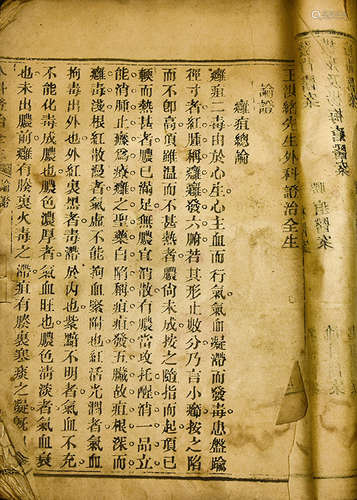 王洪緒先生外科證治全生
論證
癰疽總論
癰疽二毒由於心生心主血而行氣氣血凝滯而發毒患盤踰
徑寸者紅腫稱癰癰發六腑若其形止數分乃言小癤按之陷
而不卽高頂雖温而不甚熱者膿尚未成按之隨指而起頂已
軟而熱甚者膿已滿足無膿宜消散有膿當攻托醒消一品立
能消肿止疼爲療癰之聖藥白陷稱疽疽發五臟故疽根深而
癰毒淺根紅散漫者氣虛不能拘血緊附也紅活光潤者氣血
拘毒出外也外紅裏黑者毒滯於內也紫黯不明者氣血不充
不能化毒成膿也膿色濃厚者氣血旺也膿色清淡者氣血衰
也未出膿前癰有腠裏火毒之滯疽有腠裏寒痰之凝
外科證治全
論證